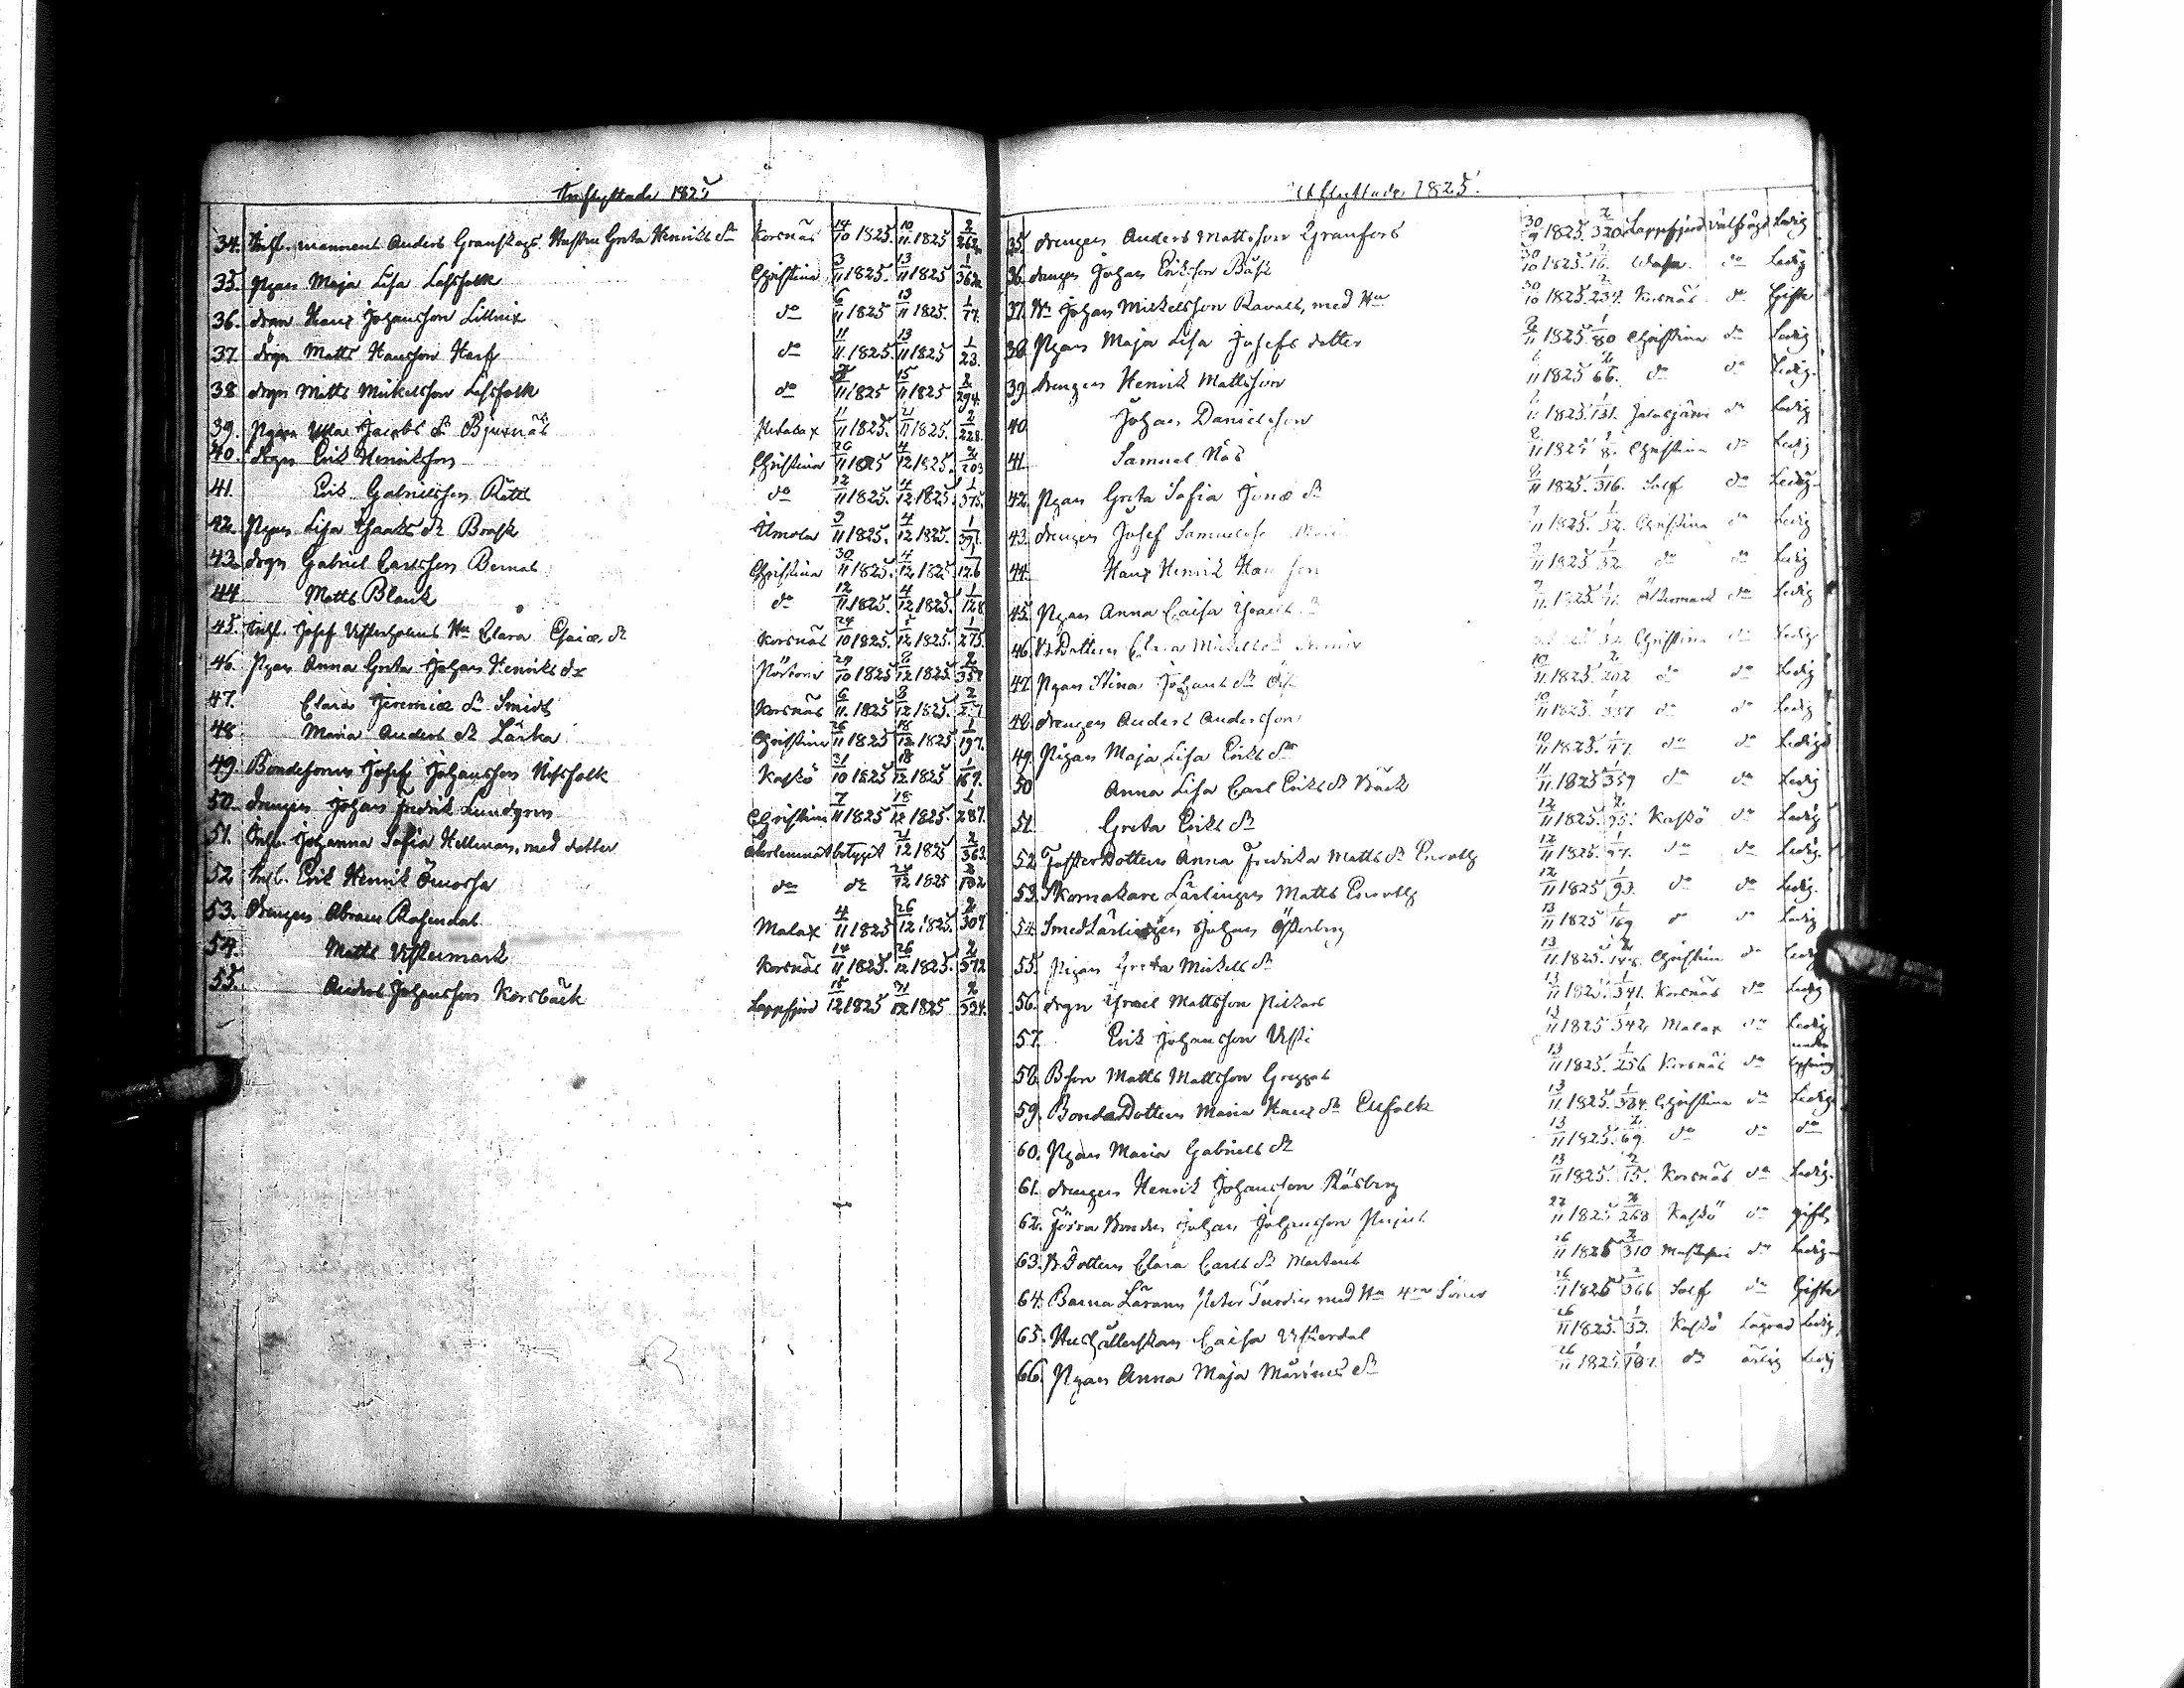 Inflyttade 1825
34. Inh. mannens Anders Granskogs Hustru Greta Henriks dr Korsnäs 14/10 1825. 10/11 1825 2/262.
35. Pigan Maja Lisa Lassfolk Christina 3/11 1825. 13/11 1825 1/362.
36. dren Hans Johansson Lillnix do 6/11 1825 13/11 1825. 1/77.
37. drgn Matts Hansson Harf do 11/11 1825. 13/11 1825 1/23.
38 drgn Matts Mickelsson Lassfolk do 11 1825 15/11 1825 2/294.
39. Pigan Jacobs dr Bjurnäs Petalax 11/11 1825. 21/11 1825. 2/228.
40. drgn Erik Henriksson Christina 26/11 1825 4/12 1825. 2/203
41. Erik Gabrielsson Rätts do 12/11 1825. 4/12 1825. 1/375.
42. Pigan Lisa Isaaks dr Brask Ilmola 9/11 1825. 4/12 1825. 1/391.
43. drgn Gabriel Carlsson Bernas Christina 30/11 1825. 4/12 1825 1/126
44 Matts Blank do 12/11 1825. 4/12 1825. 1/128
45. Inh. Josef Westerholms Hu Clara Esaiæ dr Korsnäs 24/10 1825. 12 1825. 1/275.
46. Pigan Anna Greta Johan Henriks dr Pörtom 29/10 1825 12 1825. 2/352
47. Clara Jeremiæ dr Smids Korsnäs 6/11 1825 8/12 1825. 2/
48 Maria Anders dr Lärka Christina 26/11 1825 18/12 1825 1/197.
49. Bondesonen Josef Johansson Nissfolk Kaskö 31/10 1825 18/12 1825 1/169.
50. drengen Johan Fredrik Lundgren Christina 7/11 1825 18/12 1825. 1/287.
51. Inh. Johanna Sofia Hellman, med dotter betyget 21/12 1825 2/363
52 Inh. Erik Henrik Ömossa do do 12 1825 2/102
53. Drengen Abram Rosendal Malax 4/11 1825 26/12 1825. 2/307
54. Matts Westermark Korsnäs 14/11 1825. 26/12 1825. 2/372
55. Anders Johansson Korsbäck Lappfjerd 15/12 1825 31/12 1825 2/334.
Utflyttade 1825.
35 drengen Anders Mattsson Granfors 30/9 1825. 2/320 Lappfjerd välfrägd Ledig
36. drengen Johan Eriksson Båsk 30/10 1825. Wasa. do Ledig
37. Bn Johan Mickelsson Ravals, med Hu 30/10 1825. 234. Korsnäs do Gift
38 Pigan Maja Lisa Josefs dotter 11 1825. 1/80 Christina do Ledig
39. drengen Henrik Mattsson 11 1825 66. do do Ledig.
40 Johan Danielsson 1825. 1/131. Jalasjärvi do Ledig
41 Samuel Näs 11 1825 8. Christina do Ledig
42. Pigan Greta Sofia Jonæ dr 11 1825. 1/316. Solf do Ledig.
43. drengen Josef Samuelss 11 1825. 1/32. Christina do Ledig
44. Hans Henrik Hansson 11 1825 1/32 do do Ledig
45. Pigan Anna Caisa Israels 11 1825. Östermark do Ledig
46. B Dottern Clara Mickels Christina do Ledig
47. Pigan Stina Johans dr 10/11 1825. 2/202 do do Ledig
48. drengen Anders Andersson 10/11 1825. 1/337 do do Ledig
49. Pigan Maja Lisa Eriks dr 10/11 1825. 1/47. do do Ledig
50 Anna Lisa Carl Eriks dr Bäck 11/11 1825 1/359 do do Ledig
51. Greta Eriks dr 12/11 1825. 2/95. Kaskö do Ledig
52. FosterDottern Anna Fredrika Matts dr Envall 12/11 1825. 1/97. do do Ledig.
53. Skomakare Lärlingen Matts Envall 12/11 1825 1/93. do do Ledig.
54. SmedLärlingen Johan Österberg 13/11 1825 1/169 do do Ledig
55. Pigan Greta Mickels dr 13/11 1825. 2/148. Christina do Ledig
56. drgn Israel Mattsson Pilkars 13/11 1825. 1/341. Korsnäs do Ledig
57. Erik Johansson Westi 13/11 1825 1/342 Malax do Ledig
58. Bson Matts Mattsson Greggas 13/11 1825. 1/256 Korsnäs do under lysning
59. BondeDottern Maria Hans dr Enfolk 13/11 1825. 1/334. Christina do Ledig.
60. Pigan Maria Gabriels dr 13/11 1825. 2/69. do do do
61. drengen Henrik Johansson Råsberg 13/11 1825. 2/15. Korsnäs do Ledig.
62. Förra Bonden Johan Johansson 22/11 1825 2/268 Kaskö do gift
63. B Dottern Clara Carls dr Mårtens 26/11 1825 2/310 do Ledig
64. Barna Läraren Peter Turdin med Hu 4ra Söner 26/11 1825 2/366 Solf do Gift
65. Hushållerskan Caisa Westerdal 26/11 1825. 1/33. Kaskö Lagvad Ledig
66. Pigan Anna Maja Mårtens dr 26/11 1825. 1/197. do ärlig Ledig